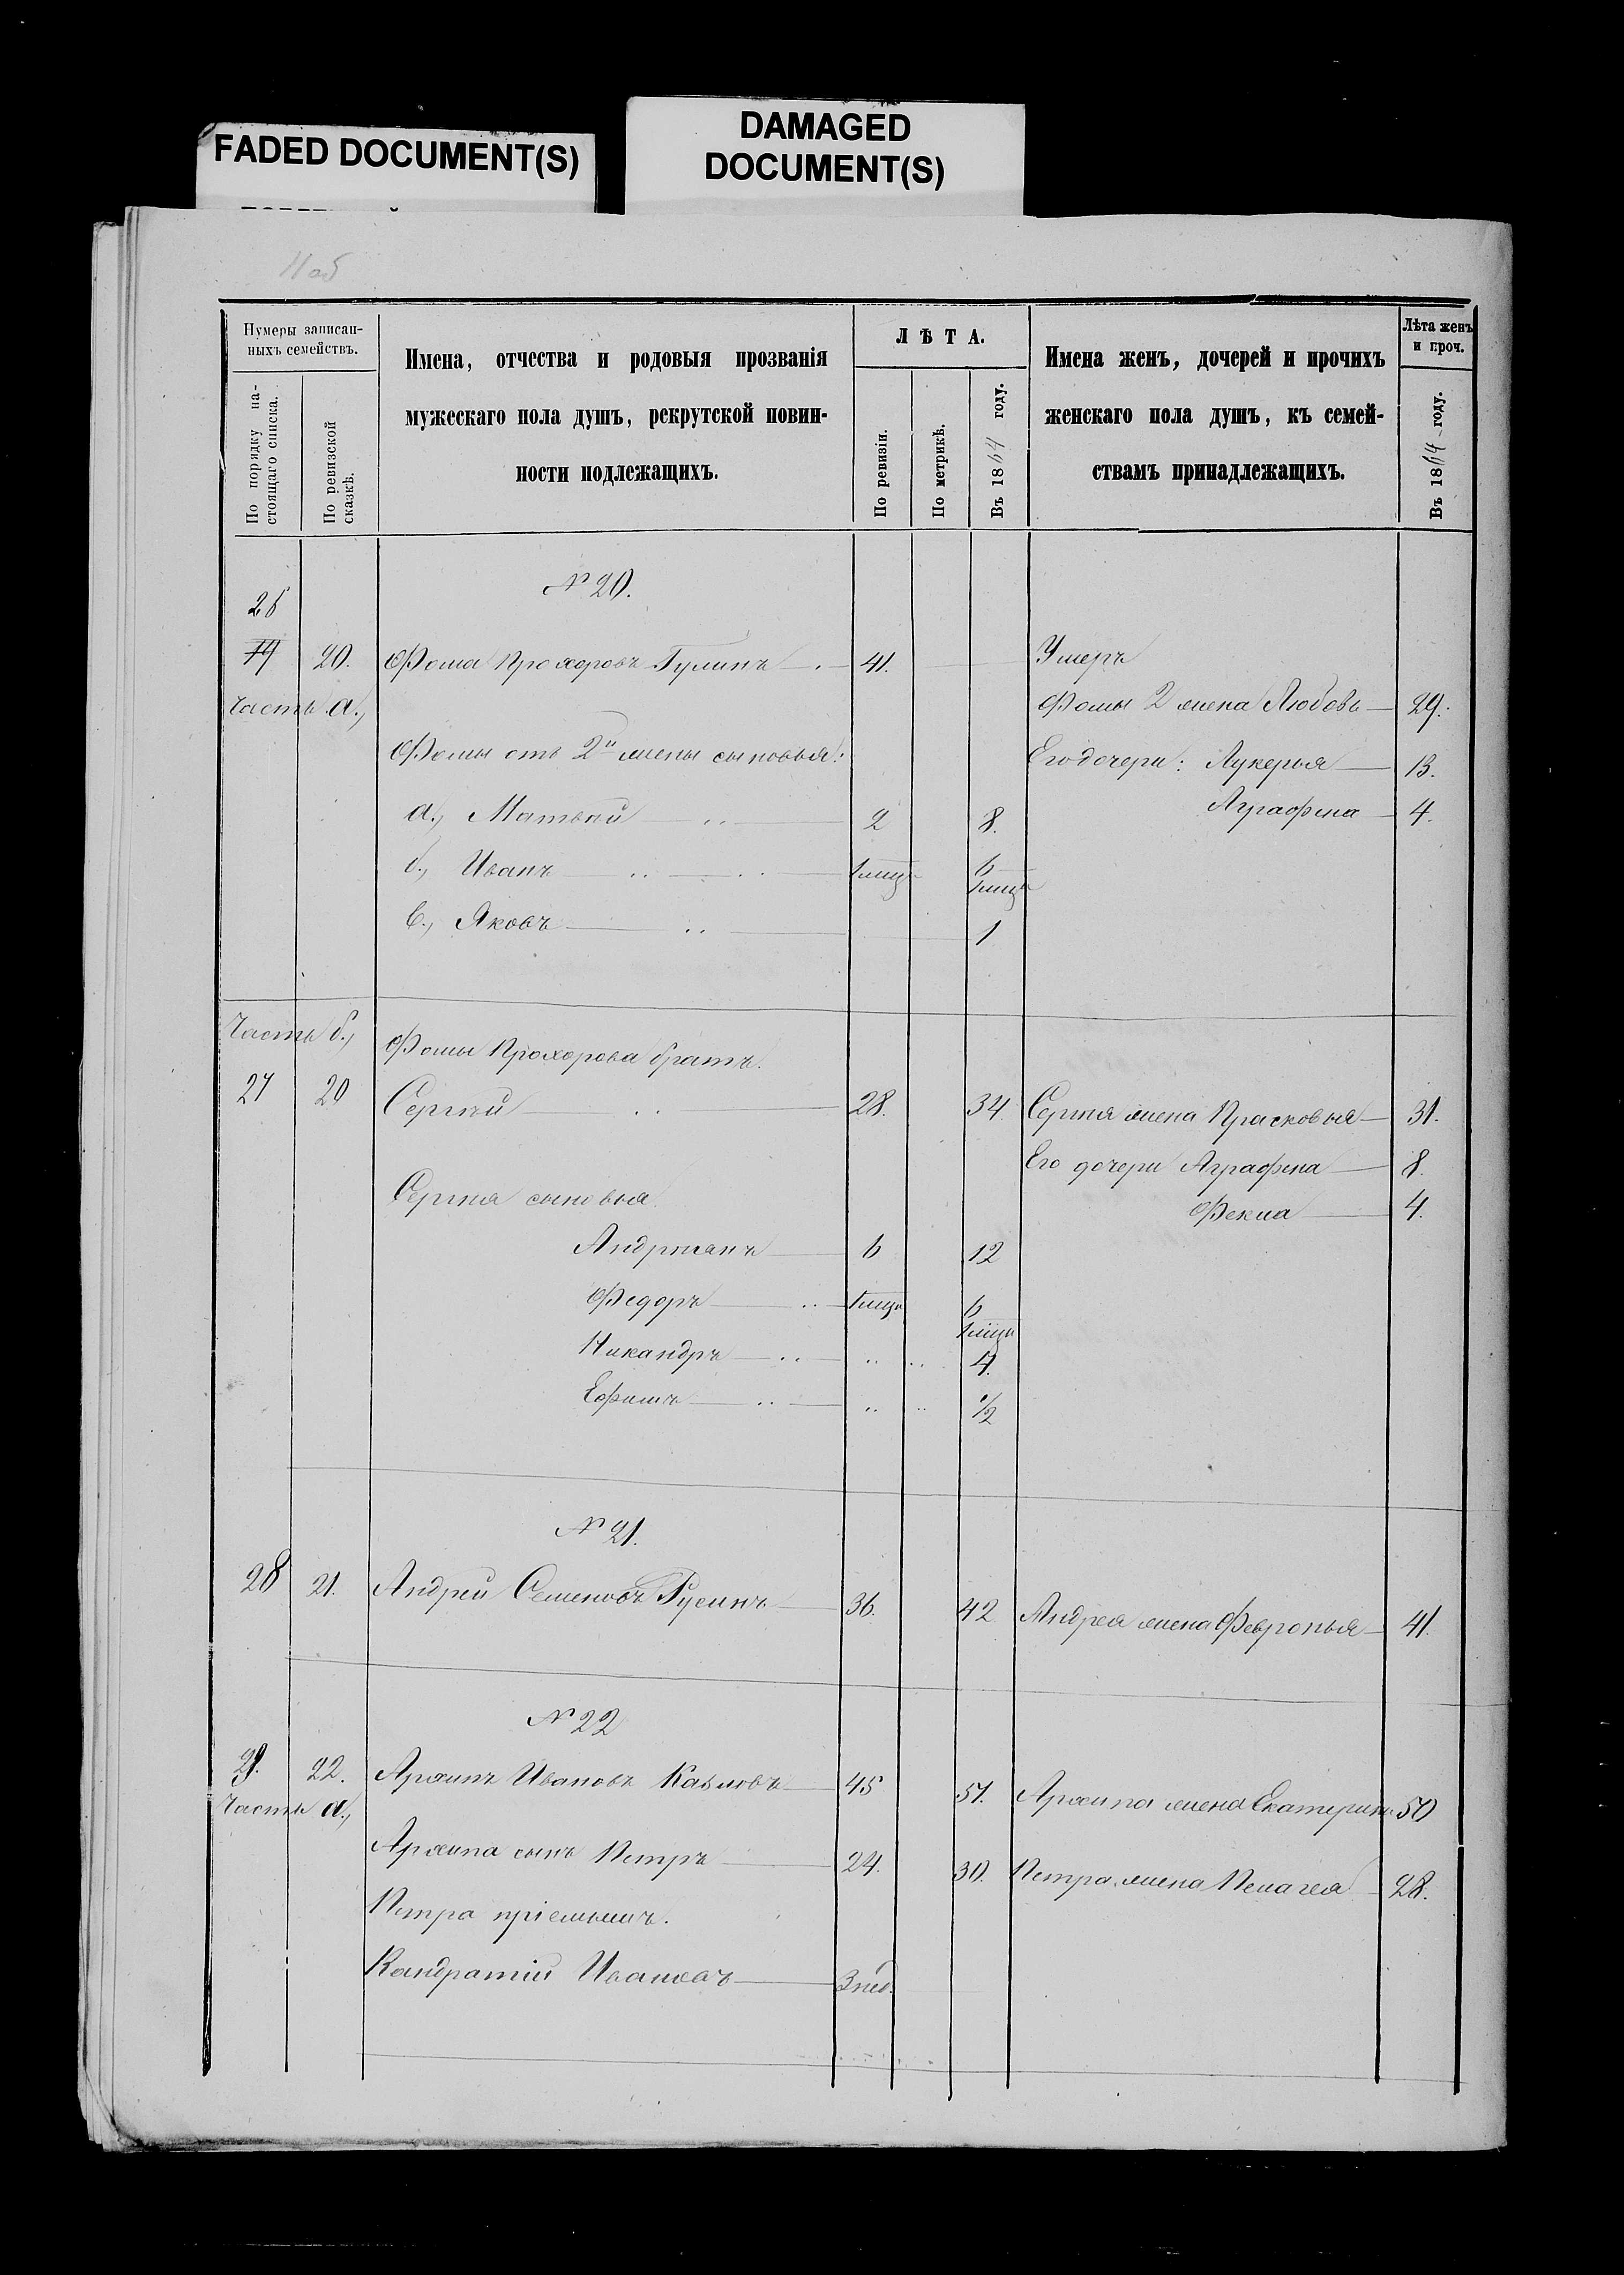 FADED DOCUMENT(S)
DAMAGED
DOCUMENT(S)
11 об
Нумеры записан-
ныхъ семействъ.
По порядку на-
стоящаго списка.
По ревизской
сказкѣ.
Имена, отчества и родовыя прозванія
мужескаго пола душъ, рекрутской повин-
ности подлежащихъ.
ЛѢТА.
По ревизіи.
По метрикѣ.
Въ 1864 году.
Имена женъ, дочерей и прочихъ
женскаго пола душъ, къ семей-
ствамъ принадлежащихъ.
Лѣта женъ
и проч.
Въ 1864 году.
№ 20.
26
20. Фома Прохоровъ Гулинъ 41. Умеръ
Часть а., Фомы 2 жена Любовь 29.
Фомы отъ 2й жены сыновья: Его дочери: Лукерья 13.
а., Матвей 2 8. Аграфена 4.
б., Иванъ 1 мнца 6 1 мнца
в., Яковъ 1
Часть б., Фомы Прохорова братъ.
27 20 Сергѣй 28. 34 Сергея жена Прасковья 31.
Его дочери Аграфена 8.
Сергея сыновья Фекла 4.
Андриянъ 6 12
Федоръ 1 мнца 6 1 мнца
Никандръ 4.
Ефимъ 1/2
№ 21.
28 21. Андрей Семеновъ Русинъ 36. 42 Андрея жена Февронья 41.
№ 22
29. 22. Архипъ Ивановъ 45 51. Архипа жена Екатерина 50
Часть а.,
Архипа сынъ Петръ 24. 30. Петра жена Пелагея 28.
Петра пріемышъ.
Кандратій Ивановъ 3 нед.